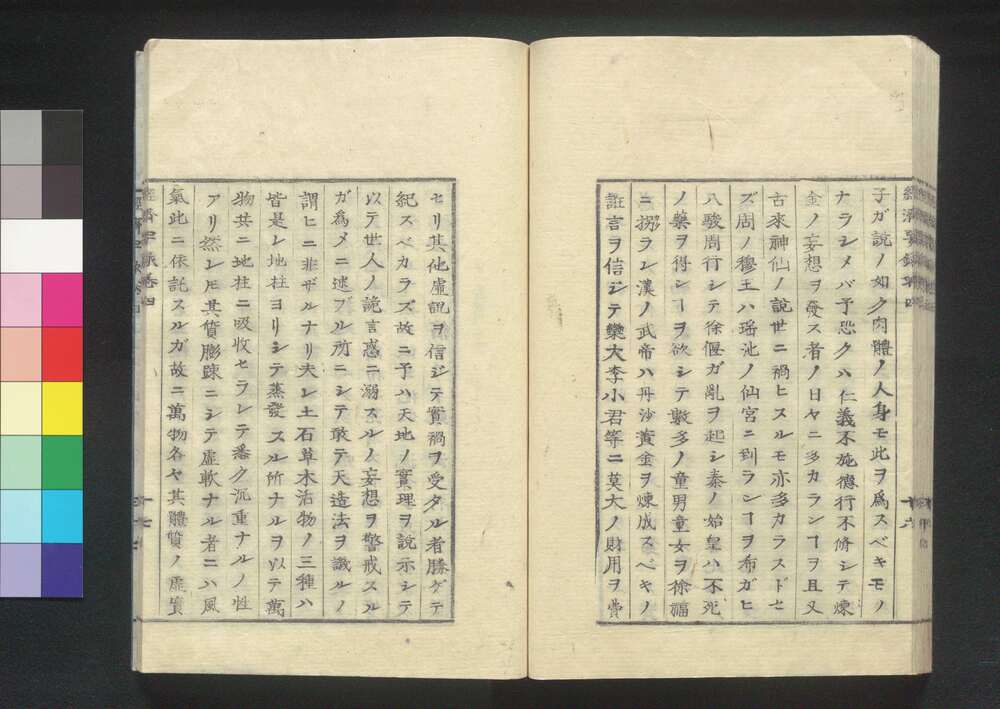 子ガ説ノ如ク肉體ノ人身モ此ヲ爲スベキモノ
ナラシメバ予恐クハ仁義不施德行不脩シテ煉
金ノ妄想ヲ發ス者ノ日ヤニ多カランヿヲ且又
古來神仙ノ說世ニ禍ヒスルモ亦多カラスドセ
ズ周ノ穆王ハ瑤池ノ仙宮ニ到ランヿヲ希ガヒ
八駿周行シテ徐偃ガ亂ヲ起シ秦ノ始皇ハ不死
ノ藥ヲ得ンヿヲ欲シテ數多ノ童男童女ヲ徐福
ニ拐ラレ漢ノ武帝ハ丹沙黃金ヲ煉成スベキノ
誑言ヲ信ジテ欒大李小君等ニ莫大ノ財用ヲ費
セリ其他虛誕ヲ信ジテ實禍ヲ受タル者勝ゲテ
紀スベカラズ故ニ予ハ天地ノ實理ヲ說示シテ
以テ世人ノ詭言惑ニ溺スルノ妄想ヲ警戒スル
ガ爲メニ述ブル所ニシテ敢テ天造法ヲ識ルノ
謂ヒニ非ザルナリ夫レ土石草木活物ノ三種ハ
皆是レ地柱ヨリシテ蒸發スル所ナルヲ以テ萬
物共ニ地柱ニ吸收セラレテ悉ク沉重ナルノ性
アリ然レ𪜈其質膨疎ニシテ虛軟ナル者ニハ風
氣此ニ依託スルガ故ニ萬物各ヤ其體質ノ虛實
十六
十七